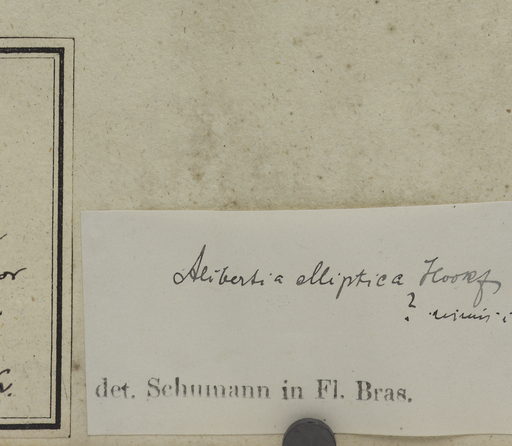 Alibertia elliptica Hookf
?
det. Schumann in Fl. Bras.
or